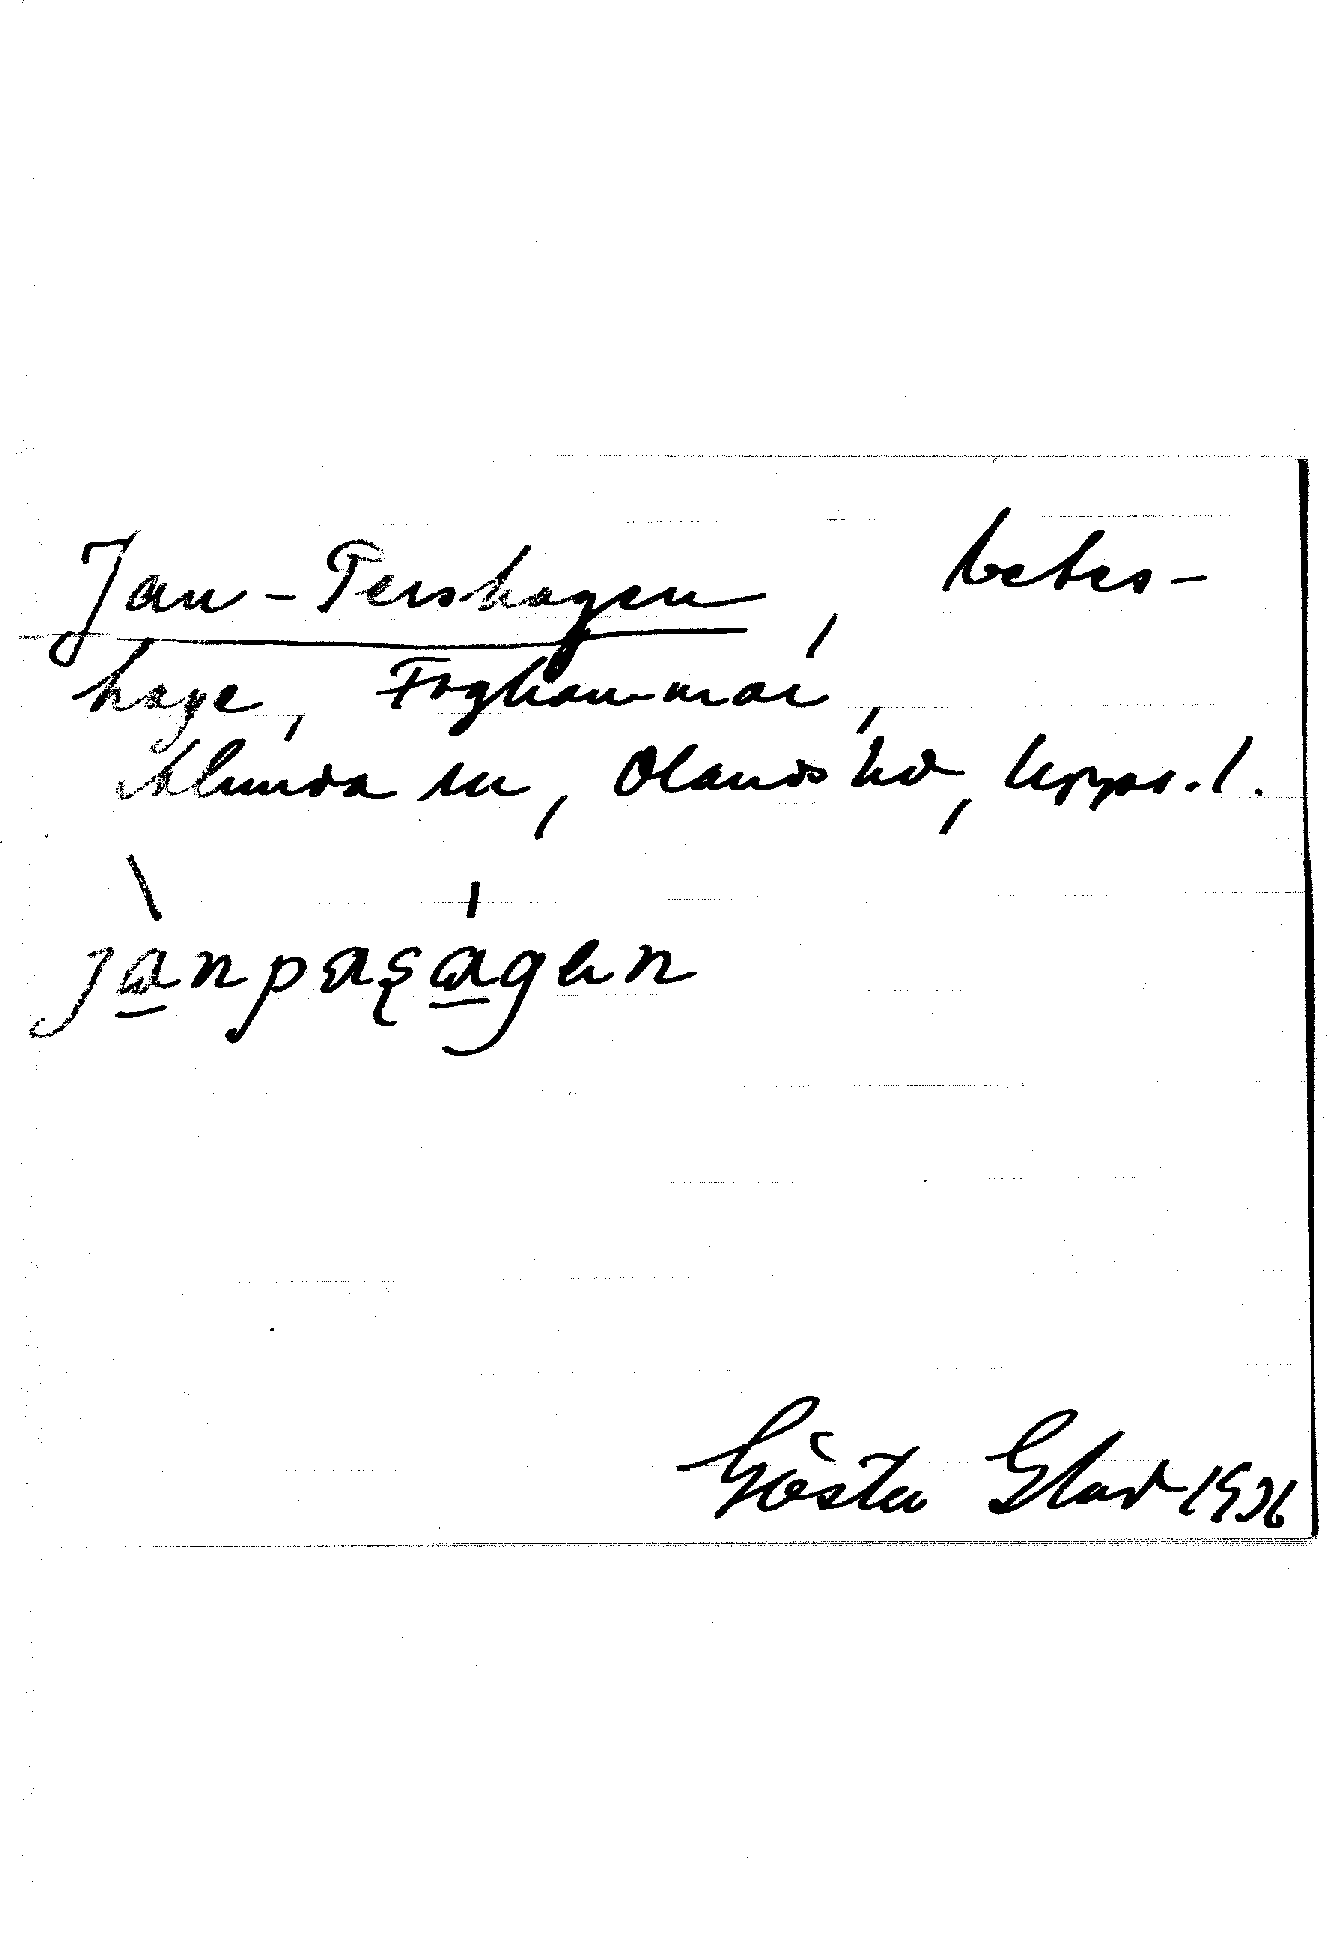 Jan-Pershagen, betes-
hage, Foghammar,
Alunda sn, Olands hd, Upps. l.
jànpaʂágen
Gösta Glad 1936